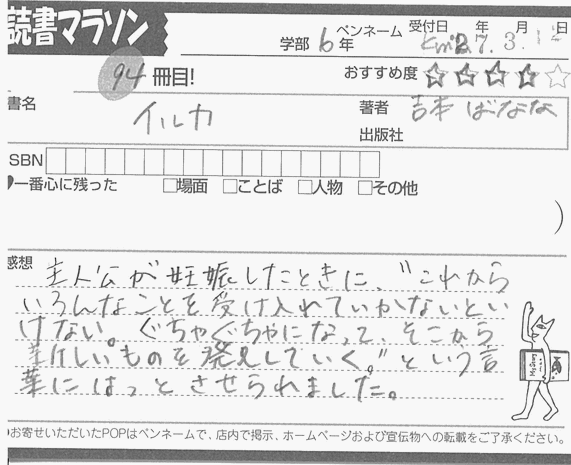 読書マラソン
学部 6年 ペンネーム 受付日 年 月 日
7. 3. 12
94 冊目!
おすすめ度 ☆☆☆☆☆
書名 イルカ
著者 吉本ばなな
出版社
SBN
一番心に残った □場面 □ことば □人物 □その他
)
感想 主人公が妊娠したときに、"これから
いろんなことを受け入れていかないとい
けない。ぐちゃぐちゃになって、そこから
新しいものを発見していく。"という言
葉にはっとさせられました。
お寄せいただいたPOPはペンネームで、店内で掲示、ホームページおよび宣伝物への転載をご了承ください。